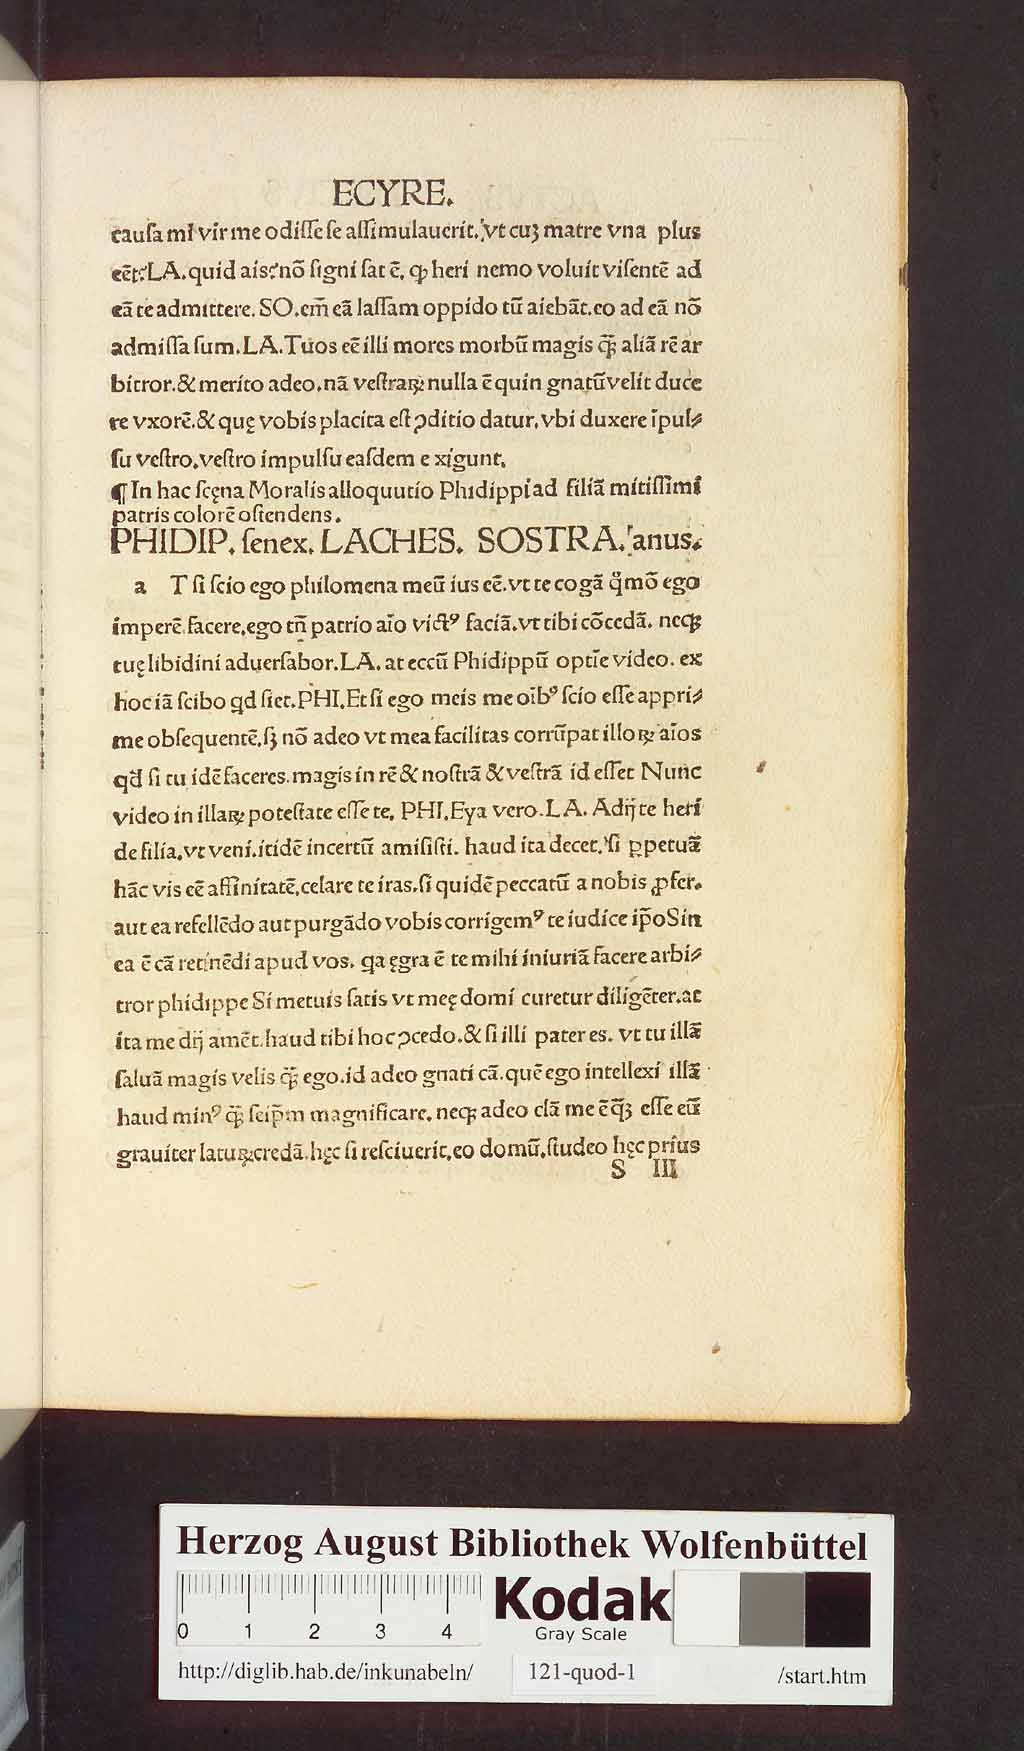 ECYRE.
cauſa mī vir me odiſſe ſe aſſimulauerit. vt cuꝫ matre vna plus
eēt: LA. quid ais: nō ſigni ſat ē, ꝙ heri nemo voluit viſentē ad
eā te admittere. SO. em̄ eā laſſam oppido tū aiebāt. eo ad eā nō
admiſſa ſum. LA. Tuos eē illi mores morbū magis q̄ȝ aliā rē ar
bitror. & merito adeo. nā veſtraꝝ nulla ē quin gnatū velit duce
re vxorē. & quę vobis placita eſt ↄditio datur. vbi duxere īpul⸗
ſu veſtro. veſtro impulſu eaſdem e xigunt.
¶ In hac ſcęna Moralis alloquutio Phidippi ad filiā mitiſſimi
patris colorē oſtendens.
PHIDIP. ſenex. LACHES. SOSTRA. anus.
a T ſi ſcio ego philomena meū ius eē. vt te cogā q̄mō ego
imperē. facere, ego tn̄ patrio aīo vict⁹ faciā. vt tibi cōcedā. neqꝫ
tuę libidini aduerſabor. LA. at eccū Phidippū optīe video. ex
hoc iā ſcibo qd ſiet. PHI. Et ſi ego meis me oīb⁹ ſcio eſſe appri⸗
me obſequentē, ſꝫ nō adeo vt mea facilitas corrūpat illoꝝ aīos
qd̄ ſi tu idē faceres. magis in rē & noſtrā & veſtrā id eſſet Nunc
video in illaꝝ poteſtate eſſe te. PHI. Eya vero. LA. Adij te heri
de filia. vt veni. itidē incertū amiſiſti. haud ita decet. ſi ꝑpetuā
hāc vis eē affinitatē, celare te iras. ſi quidē peccatū a nobis ꝓfer.
aut ea refellēdo aut purgādo vobis corrigem⁹ te iudice ip̄o Sin
ea ē cā retinēdi apud vos. qa ęgra ē te mihi iniuriā facere arbi⸗
tror phidippe Si metuis ſatis vt meę domi curetur diligēter. ac
ita me dij amēt. haud tibi hoc ↄcedo. & ſi illi pater es. vt tu illā
ſaluā magis velis q̄ȝ ego. id adeo gnati cā. quē ego intellexi illā
haud min⁹ q̄ȝ ſeip̄m magnificare. neqꝫ adeo clā me ē q̄ȝ eſſe eū
grauiter latuꝝ credā. hęc ſi reſciuerit, eo domū. ſtudeo hęc prius
S III
Herzog August Bibliothek Wolfenbüttel
0 1 2 3 4
Kodak
Gray Scale
http://diglib.hab.de/inkunabeln/ 121-quod-1 /start.htm